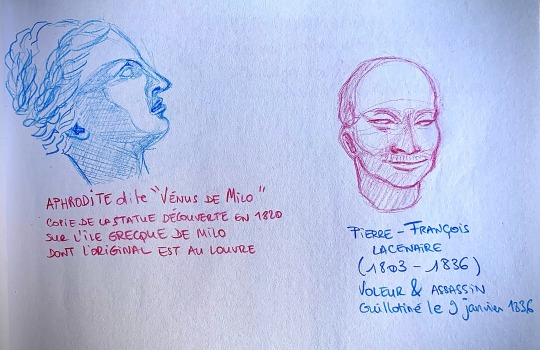 APHRODITE dite "VÉNUS DE MILO"
COPIE DE LA STATUE DÉCOUVERTE EN 1820
SUR L'ÎLE GRECQUE DE MILO
DONT L'ORIGINAL EST AU LOUVRE
PIERRE-FRANÇOIS
LACENAIRE
(1803-1836)
VOLEUR & ASSASSIN
Guillotiné le 9 janvier 1836